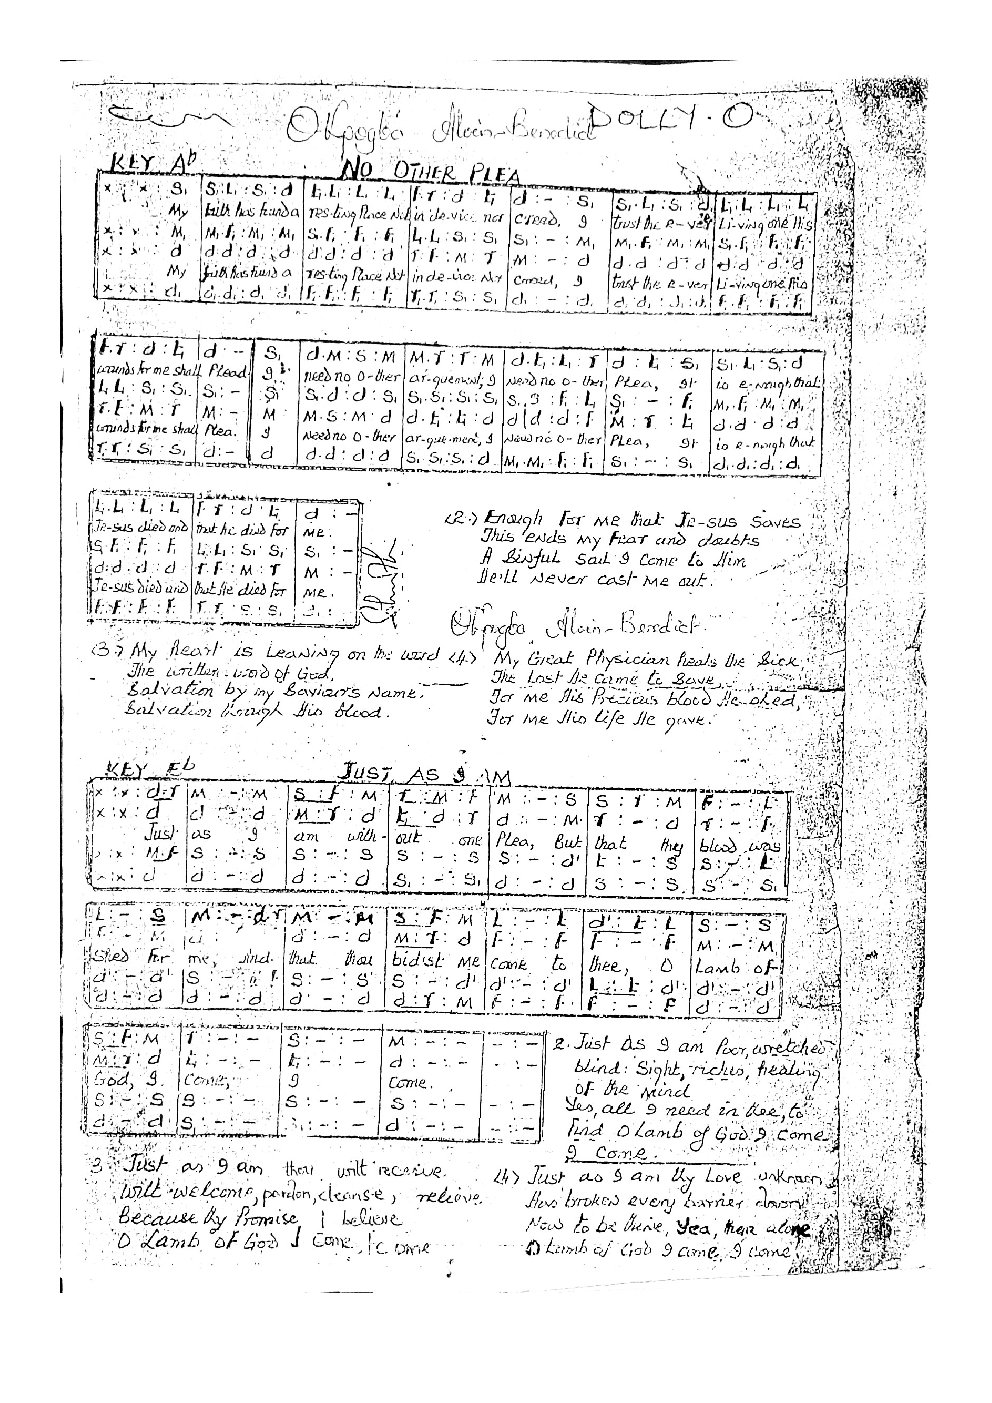 Okpogba Alain-Benedict DOLLY. O
KEY Ab NO OTHER PLEA
x : x : x : S₁ | S₁.L₁ : S₁ : d | L₁.L₁ : L₁ : L₁ | f.r : d : t₁ | d : - : S₁ | S₁.L₁ : S₁ : d | L₁.L₁ : L₁ : L₁
My | faith has found a | res-ting Place Not | in de-vice nor | Creed, I | trust the e-ver | Li-ving one His
M₁ | M₁.F₁ : M₁ : M₁ | S₁.F₁ : F₁ : F₁ | L₁.L₁ : S₁ : S₁ | S₁ : - : M₁ | M₁.F₁ : M₁ : M₁ | S₁.F₁ : F₁ : F₁
x : x : x : d | d.d : d : d | d.d : d : d | r.f : M : r | M : - : d | d.d : d : d | d.d : d : d
My | faith has fund a | res-ting Place Not | in de-vice Nor | Creed, I | trust the e-ver | Li-ving one His
x : x : x : d₁ | d₁.d₁ : d₁ : d₁ | F₁.F₁ : F₁ : F₁ | r₁.r₁ : S₁ : S₁ | d₁ : - : d₁ | d₁.d₁ : d₁ : d₁ | F₁.F₁ : F₁ : F₁
f.r : d : t₁ | d : - | S₁ | d.M : S : M | M.r : r : M | d.t₁ : L₁ : r | d : t₁ : S₁ | S₁.L₁ : S₁ : d
wounds for me shall | Plead | I, | need no o-ther | ar-guement, I | need no o-ther | Plea, It | is e-nough that
L₁.L₁ : S₁ : S₁ | S₁ : - | S₁ | S₁.d : d : S₁ | S₁.S₁ : S₁ : S₁
r.f : M : r | M : - | M | M.S : M : d
wounds for me shall | Plea. | I | need no o-ther | ar-gue-ment, I | need no o-ther | Plea, It | is e-nough that
r₁.r₁ : S₁ : S₁ | d : - | d | d.d : d : d | S₁.S₁ : S₁ : d | M₁.M₁ : F₁ : F₁ | S₁ : - : S₁ | d₁.d₁ : d₁ : d₁
L₁.L₁ : L₁ : L₁ | f.r : d : t₁ | d : -
Je-sus died and | that he died for | me.
S₁.F₁ : F₁ : F₁ | L₁.L₁ : S₁ : S₁ | S₁ : -
d.d : d : d | r.f : M : r | M : -
Je-sus Died and | that He died for | me.
F₁.F₁ : F₁ : F₁ | r₁.r₁ : S₁ : S₁
(2.) Enough for me that Je-sus saves
This ends my fear and doubts
A Sinful Soul I come to Him
He'll never cast me out.
Okpogba Alain-Benedict
(3.) My heart is Leaning on the word
The written word of God,
Salvation by my Saviour's Name.
Salvation through His blood.
(4.) My Great Physician heals the Sick
The Lost He came to Save,
For me His Precious blood He shed,
For me His life He gave.
KEY Eb JUST AS I AM
x : x : d.r | M : - : M | S : F : M | r : M : f | M : - : S | S : r : M | F : - : L
x : x : d | d : - : d | M : r : d | t₁ : d : r | d : - : M | r : - : d | r : - : f
Just | as I | am with- | out one | Plea, But | that thy | blood was
x : x : M.f | S : - : S | S : - : S | S : - : S | S : - : d' | t : - : S | S : - : L
x : x : d | d : - : d | d : - : d | S₁ : - : S₁ | d : - : d | S : - : S | S : - : S₁
L : - : S | M : - : d.r | M : - : M | S : F : M | L : - : L | d' : t : L | S : - : S
d : - : d | M : r : d | F : - : F | F : - : F | M : - : M
shed for | me, And | that thou | bidist me | come to | thee, O | Lamb of
d' : - : d' | S : - | S : - : S | S : - : d' | d' : - : d' | L : t : d' | d' : - : d'
d : - : d | d : - : d | d' : - : d | d : r : M | F : - : F | F : - : F | d : - : d
S : F : M | r : - : - | S : - : - | M : - : - | - : -
M : r : d | t₁ : - : - | t₁ : - : - | d : - : - | - : -
God, I | Come, | I | Come.
S : - : S | S : - : - | S : - : - | S : - : - | - : -
d : - : d | S : - : - | S₁ : - : - | d : - : - | - : -
2. Just As I am Poor, wretched,
blind: Sight, riches, healing
of the mind
Yes, all I need in thee, to
find O Lamb of God I come
I come.
3. Just as I am thou wilt receive
Wilt welcome, pardon, cleanse, relieve
Because thy Promise I believe
O Lamb of God I come, I come
(4) Just as I am thy Love unknown
Has broken every barrier down
Now to be thine, Yea, thine alone
O Lamb of God I come, I come